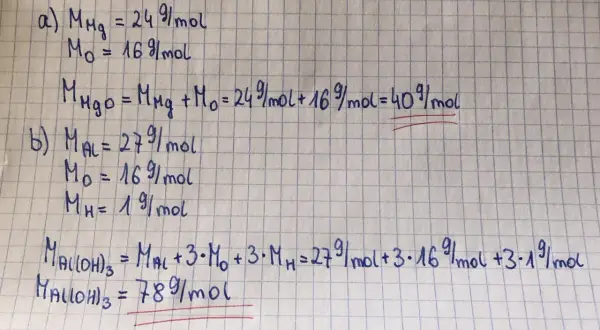 a) M_Hg = 24 g/mol
M_O = 16 g/mol
M_HgO = M_Hg + M_O = 24 g/mol + 16 g/mol = 40 g/mol
b) M_Al = 27 g/mol
M_O = 16 g/mol
M_H = 1 g/mol
M_Al(OH)₃ = M_Al + 3·M_O + 3·M_H = 27 g/mol + 3·16 g/mol + 3·1 g/mol
M_Al(OH)₃ = 78 g/mol